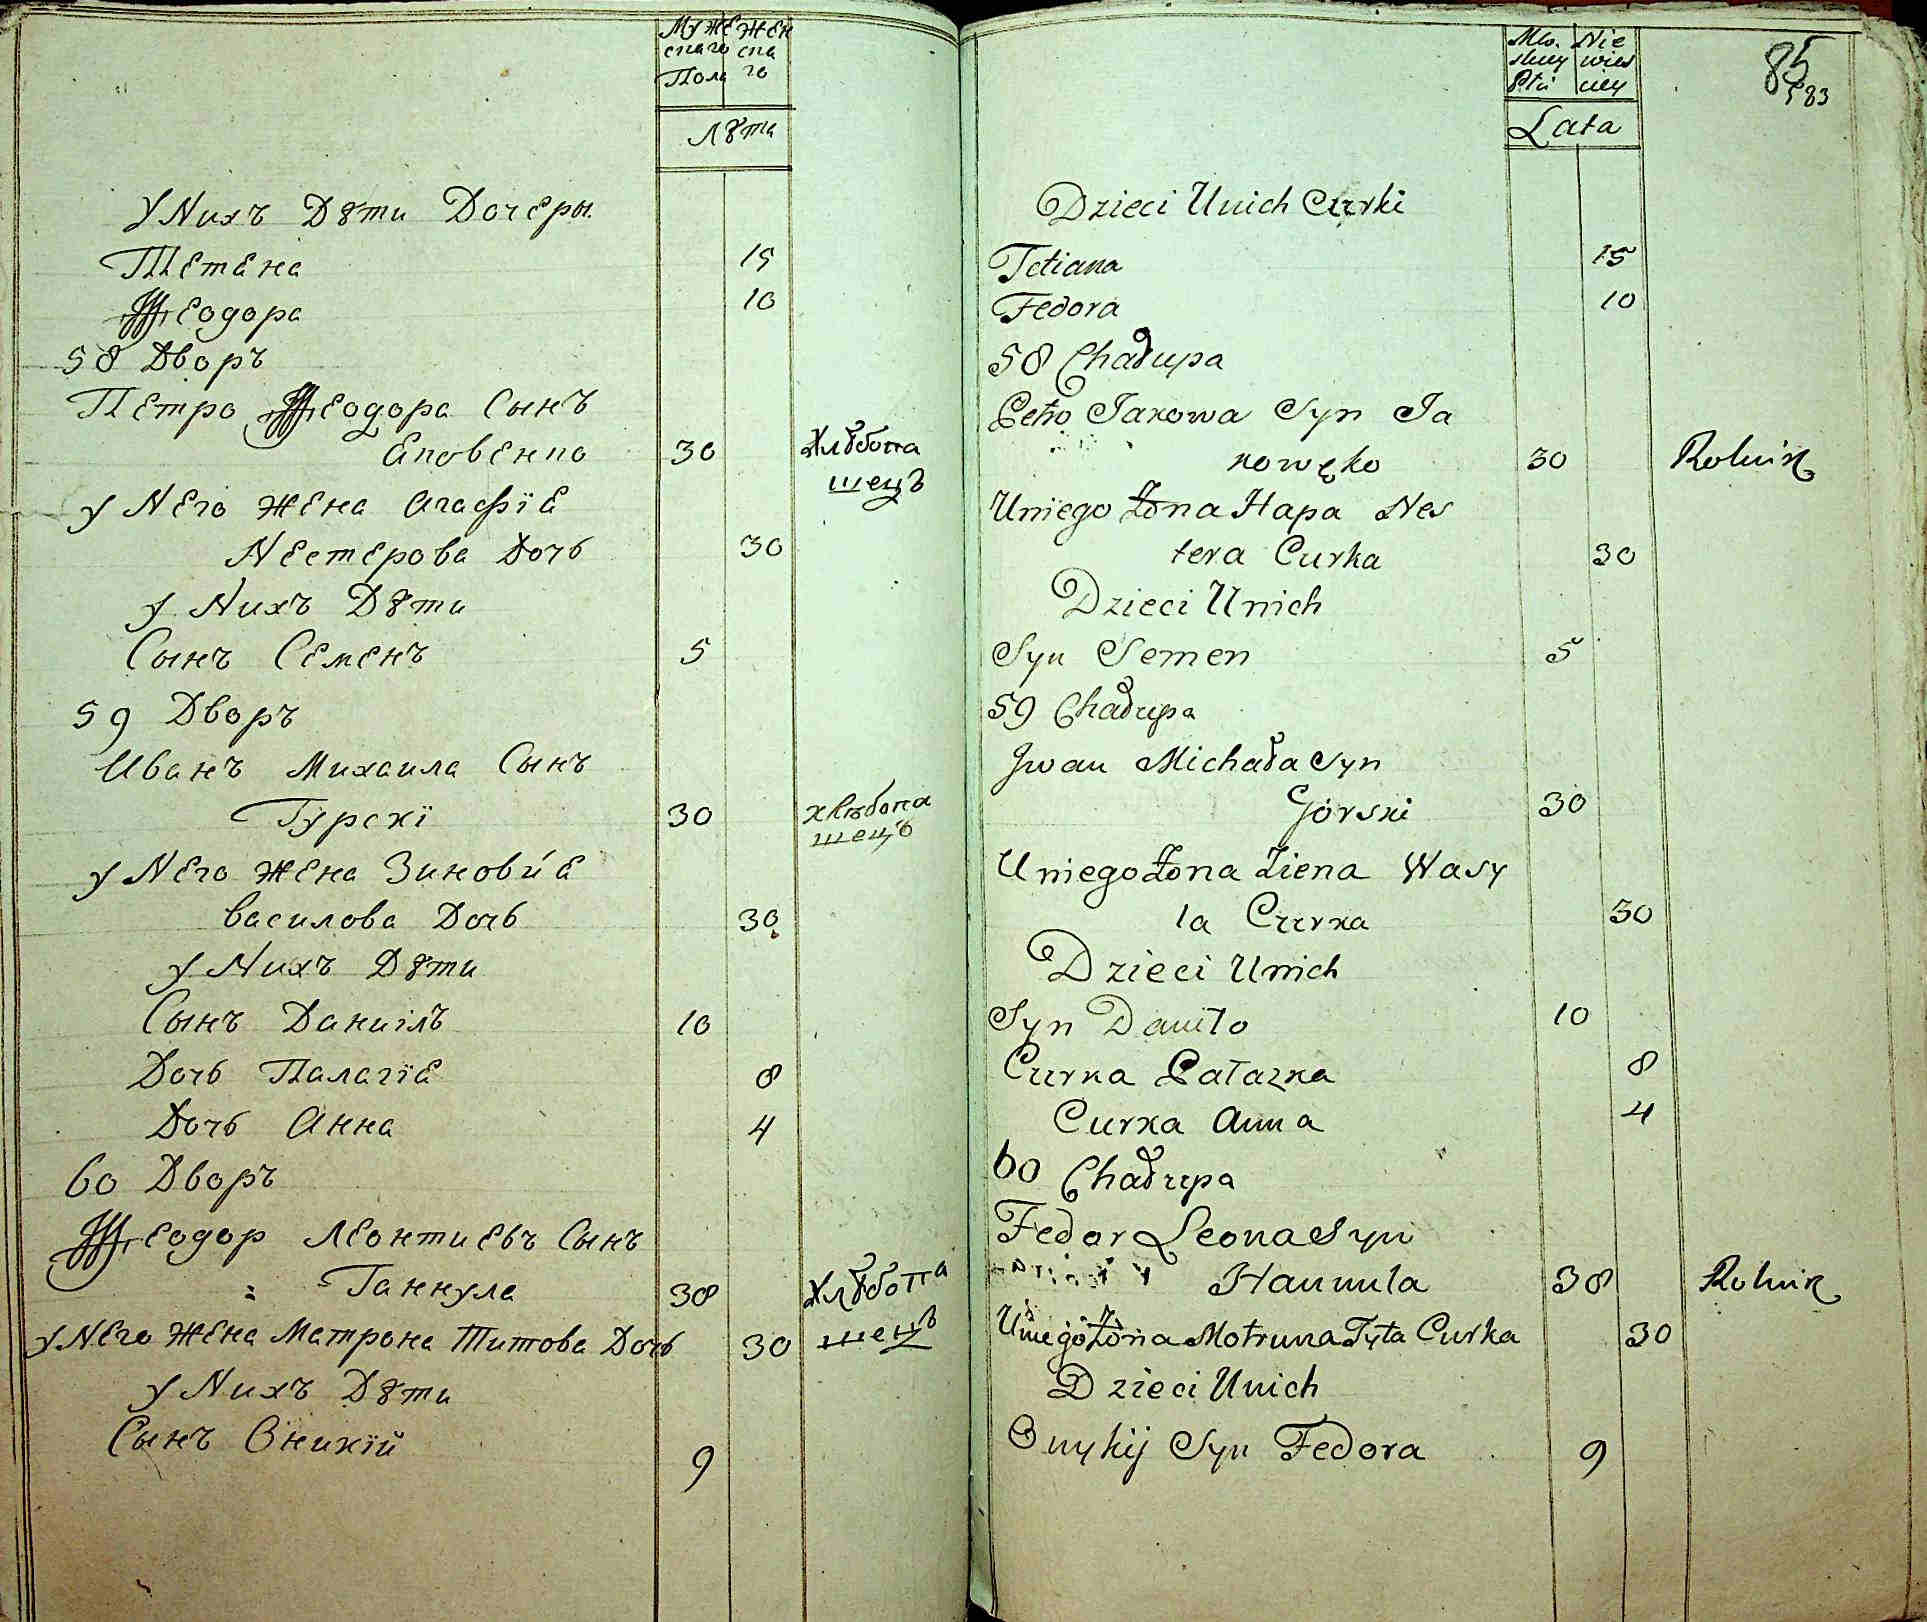 Муже жен
скаго ска
Пола го
Лѣта
У Нихъ Дѣти Дочеры
Тетѧна 15
Ѳеодора 10
58 Дворъ
Петро Ѳеодора Сынъ
Яковенко 30 Хлѣбопа
шецъ
у Него жена Агафїѧ
Нестерова Дочь 30
у Нихъ Дѣти
Сынъ Семенъ 5
59 Дворъ
Иванъ Михаила Сынъ
Гурскї 30 хлѣбопа
шецъ
у Него жена Зиновиѧ
василова Дочь 30
у Нихъ Дѣти
Сынъ Даниілъ 10
Дочь Палагїѧ 8
Дочь Анна 4
60 Дворъ
Ѳеодор Леонтиевъ Сынъ
Ганнула 38 Хлѣбопа
у Него Жена Матрона Титова Дочь 30 шецъ
у Нихъ Дѣти
Сынъ Оникїй 9
Mę. Nie
skiey wies
Płci ciey
85
583
Lata
Dzieci Unich Curki
Tetiana 15
Fedora 10
58 Chałupa
Petro Jakowa Syn Ja
kowęko 30 Rolnik
Uniego Żona Hapa Nes
tera Curka 30
Dzieci Unich
Syn Semen 5
59 Chałupa
Jwan Michała Syn
Górski 30
Uniego Żona Ziena Wasy
la Curka 30
Dzieci Unich
Syn Daniło 10
Curka Pałazka 8
Curka Anna 4
60 Chałupa
Fedor Leona Syn
Hannula 38 Rolnik
Uniego Żona Motruna Tyta Curka 30
Dzieci Unich
Onykij Syn Fedora 9